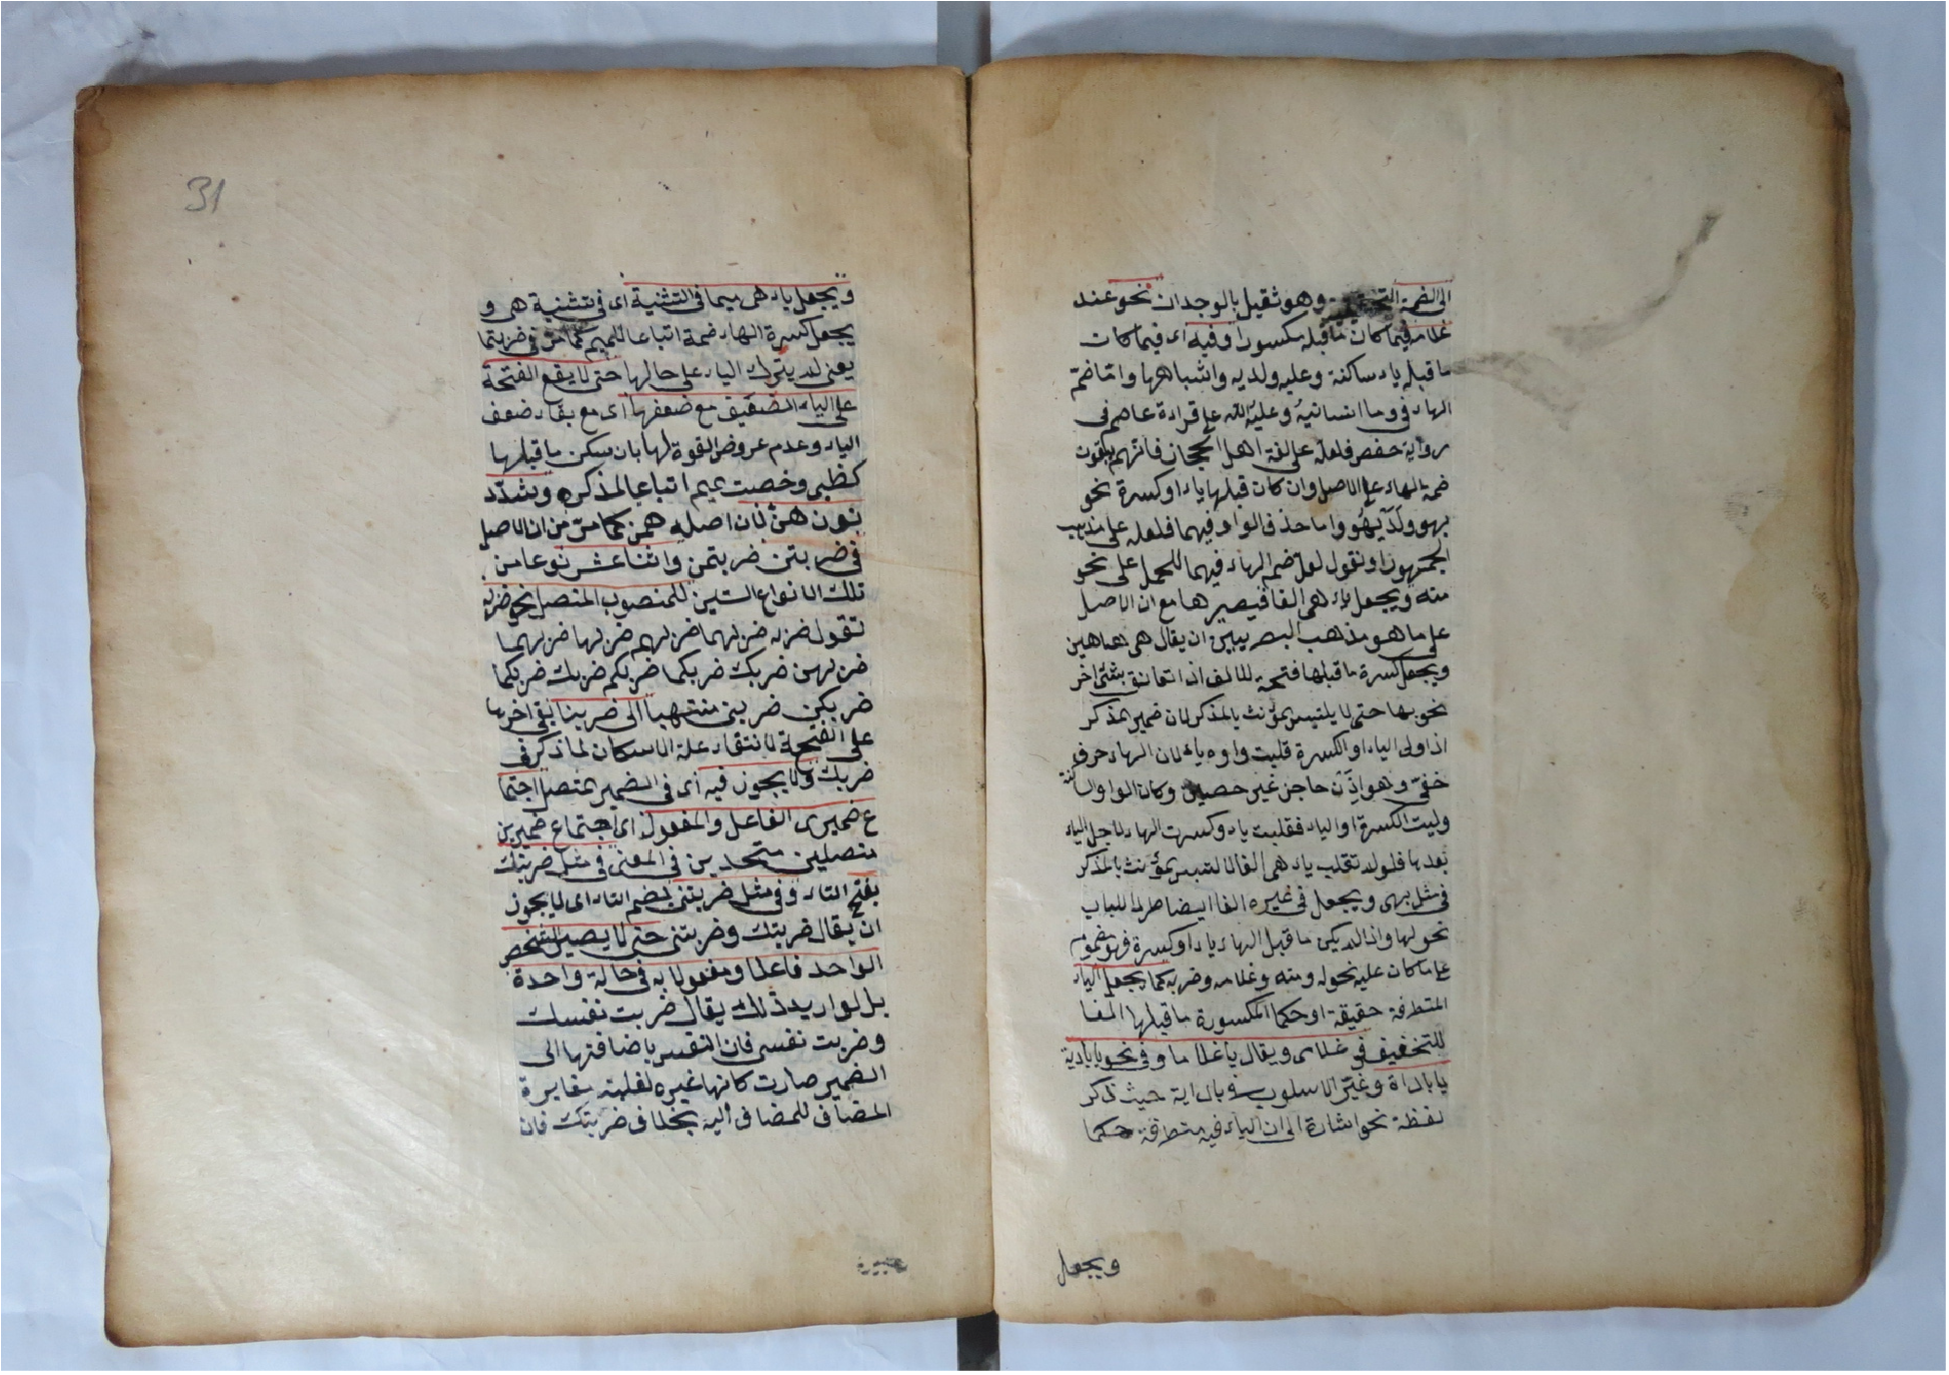 الى الضمة وهو ثقيل بالوجدان نحو عند
غلامه فيما كان ما قبله مكسورا وفيه اى فيما كان
ما قبله ياء ساكنة وعليه ولديه واشباهها وامّا ضمّ
الهاء فى وما انسانيهُ وعليهُ الله على قراءة عاصم فى
رواية حفص فلعله على لغة اهل الحجاز فانهم يبقون
ضمة الهاء على الاصل وان كان قبلها ياء او كسرة نحو
بهو ولديهو واما حذف الواو فيهما فلعله على مذهب
الجمهور او نقول لعل ضم الهاء فيهما للحمل على نحو
منه ويجعل ياء هى الفا فيصير ها مع ان الاصل
على ما هو مذهب البصريين ان يقال هى هما هين
ويجعل كسرة ما قبلها فتحة للالف اذا تعانق بشئ اخر
نحو بها حتى لا يلتبس المؤنث بالمذكر لان ضمير المذكر
اذا ولى الياء او الكسرة قلبت واوه ياء لان الهاء حرف
خفىّ وهو اذن حاجز غير حصين وكان الواو الساكنة
وليت الكسرة او الياء فقلبت ياء وكسرت الهاء لاجل الياء
بعدها فلو لم تقلب ياء هى الفا لالتبس المؤنث بالمذكر
فى مثل بهى ويجعل فى غيره الفا ايضا طردا للباب
نحو لها واذا لم يكن ما قبل الهاء ياء او كسرة فهو مضموم
على ما كان عليه نحو له ومنه وغلامه وضربه كما يجعل الياء
المتطرفة حقيقة او حكما المكسورة ما قبلها الفا
للتخفيف فى غلامى ويقال يا غلاما وفى نحو يا بادية
يا باداة وغيّر الاسلوب فى بادية حيث ذكر
لفظة نحو اشارة الى ان الياء فيه متطرفة حكما
ويجعل
31
ويجعل ياء هى ميما فى التثنية اى فى تثنية هى و
يجعل كسرة الهاء ضمة اتباعا للميم كما مرّ فى ضربتما
يعنى لم يترك الياء على حالها حتى لا يقع الفتحة
على الياء الضعيف مع ضعفها اى مع بقاء ضعف
الياء وعدم عروض القوة لها بان سكن ما قبلها
كظبى وخصت بميم اتباعا لمذكره وشدّد
نون هنّ لان اصله همن كما مرّ من ان الاصل
فى ضربتن ضربتمن واثنا عشر نوعا من
تلك الانواع الستين للمنصوب المتصل نحو ضربه
تقول ضربه ضربهما ضربهم ضربها ضربهما
ضربهن ضربك ضربكما ضربكم ضربك ضربكما
ضربكن ضربنى منتهيا الى ضربنا بقى اخرها
على الفتحة لانتفاء علة الاسكان لما ذكر فى
ضربك ولا يجوز فيه اى فى الضمير المتصل اجتما
ع ضميرى الفاعل والمفعول اى اجتماع ضميرين
متصلين متحدين فى المعنى فى مثل ضربتك
بفتح التاء وفى مثل ضربتنى بضم التاء اى لا يجوز
ان يقال ضربتك وضربتنى حتى لا يصير الشخص
الواحد فاعلا ومفعولا به فى حالة واحدة
بل لو اريد ذلك يقال ضربت نفسك
وضربت نفسى فان النفس باضافتها الى
الضمير صارت كانها غيره لغلبة مغايرة
المضاف للمضاف اليه بخلاف ضربتك فان